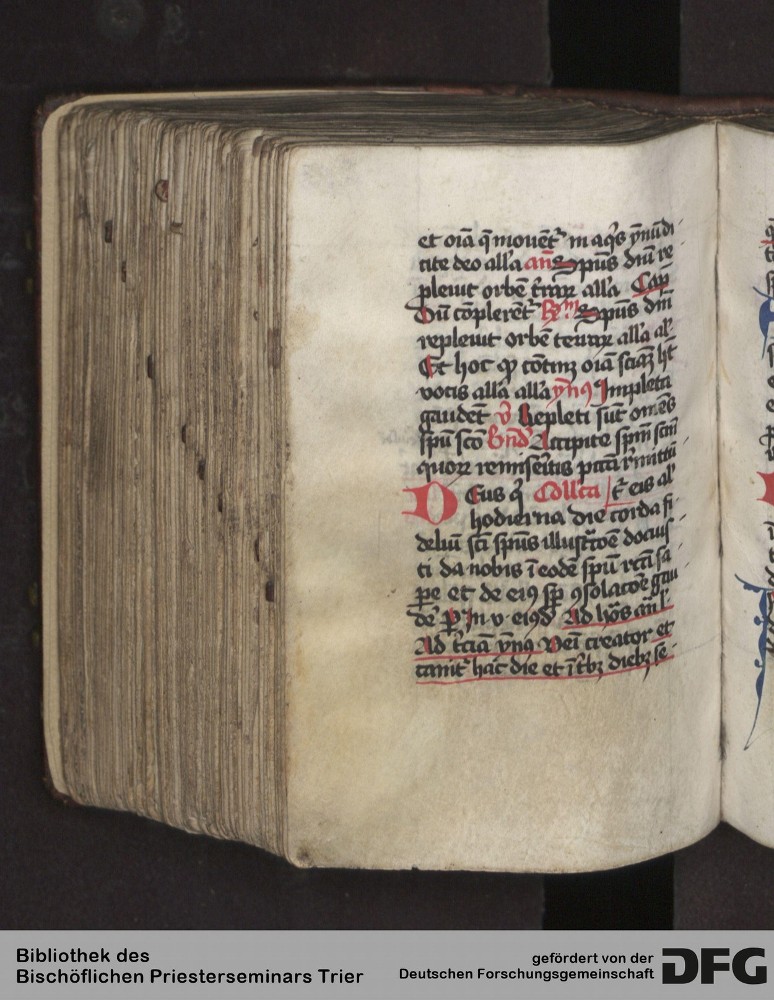 et oīa q̄ mouēt᷑ in aq̄s ymnū di
cite deo all'a añ Spūs dn̄i re
pleuit orbē t̄rarꝝ all'a Cap̄
Dū cōplerēt᷑ Spūs dn̄i
repleuit orbē terrarꝝ all'a al'
Et hoc qͥ cōtinꝫ oīa sciāꝫ ht̄
vocis all'a all'a ymꝰ Impleta
gaudēt v̄ Repleti sūt om̄es
spū scō Bn̄d Accipite spm̄ scm̄
quorꝝ remiseritis pctā
Deus q̄ Coll'ca t̄ eis al'
hodierna die corda fi
deliū sc̄i spūs illustr̄oē docuis
ti da nobis ī eodē spū rc̄a sa
ꝑe et de eiꝰ sꝑ ꝯsolac̄oē gau
dē ꝑ In v eiꝰd Ad hōs añ l'
Ad t̄ciā ymꝰ Veni creator et
canit᷑ hac die et ī t'bꝫ diebꝫ se
Bibliothek des
Bischöflichen Priesterseminars Trier
gefördert von der
Deutschen Forschungsgemeinschaft
DFG